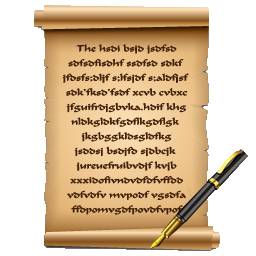 The hsdi bsjd jsdfsd
sdfsdfisdhf ssdfsd sdkf
jfdsfs:dljf s;lfsjdf s;aldfjsf
sdk'fksd'fsdf xcvb cvbxc
jfguifrdjgbvka.hdif khg
nldkgldkfgdflkgdflgk
jkgbggkldsgldfkg
jsddsj bsdjfb sjdbcjk
jureuefruibvdjf kvjb
vdfvdfv mvpodf vgsdfa